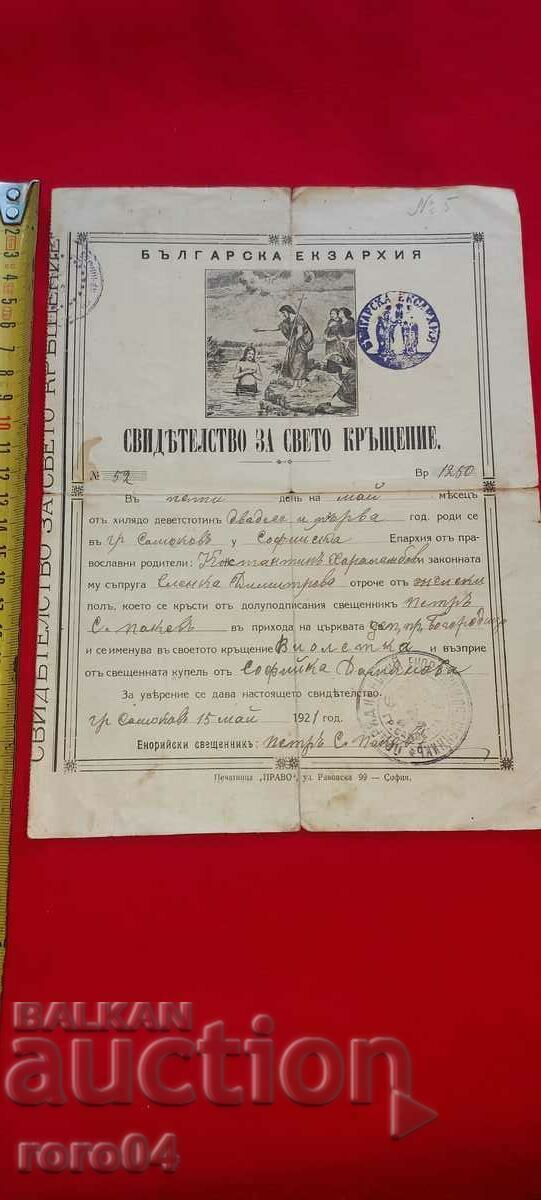 № 5
БЪЛГАРСКА ЕКЗАРХИЯ
БЪЛГАРСКА ЕКЗАРХИЯ
СВИДѢТЕЛСТВО ЗА СВЕТО КРЪЩЕНИЕ
СВИДѢТЕЛСТВО ЗА СВЕТО КРЪЩЕНИЕ.
№ 52 Вр 1250
Въ пети день на май мѣсецъ
отъ хилядо деветстотинъ двадесе и първа год. роди се
въ гр Самоковъ у Софийска Епархия отъ пра-
вославни родители: Константинъ Хараламбовъ законната
му съпруга Еленка Димитрова отроче отъ женски
полъ, което се кръсти отъ долуподписания свещенникъ Петръ
С. Пакевъ въ прихода на църквата Богородица
и се именува въ светото кръщение Виолетка и възприе
отъ свещенната купель отъ Софийка
За уверение се дава настоящето свидѣтелство.
гр Самоковъ 15 май 1921 год.
Енорийски свещенникъ: Петръ С.
Печатница „ПРАВО", ул Раковска 99 — София.
BALKAN
auction
roro04